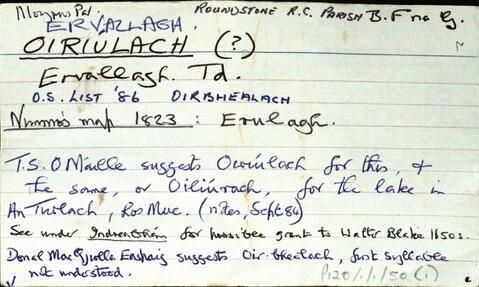 Moyrus Pd. ROUNDSTONE R.C. PARISH B. F na G.
ERVALLAGH.
OIRIULACH (?)
Ervallagh. Td.
O.S. LIST '86 OIRBHEALACH
Nimmo's map 1823 : Erulagh.
T.S. O Máille suggests for this, &
the same, or for the lake in
An Turlach, Ros Muc. (notes, Sept 86)
See under for possible grant to Walter Blake 1650s.
Donal Mac Giolla Easpaig suggests Oir-bhealach, first syllable
not understood.
P120/1/1/50 (1)